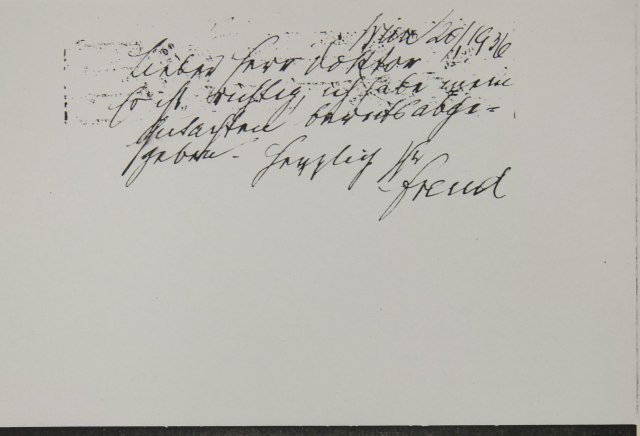 Wien 20/1 1936
Lieber Herr Doktor
Es ist richtig, ich habe mein
Gutachten bereits abge-
geben. Herzlich Ihr
Freud